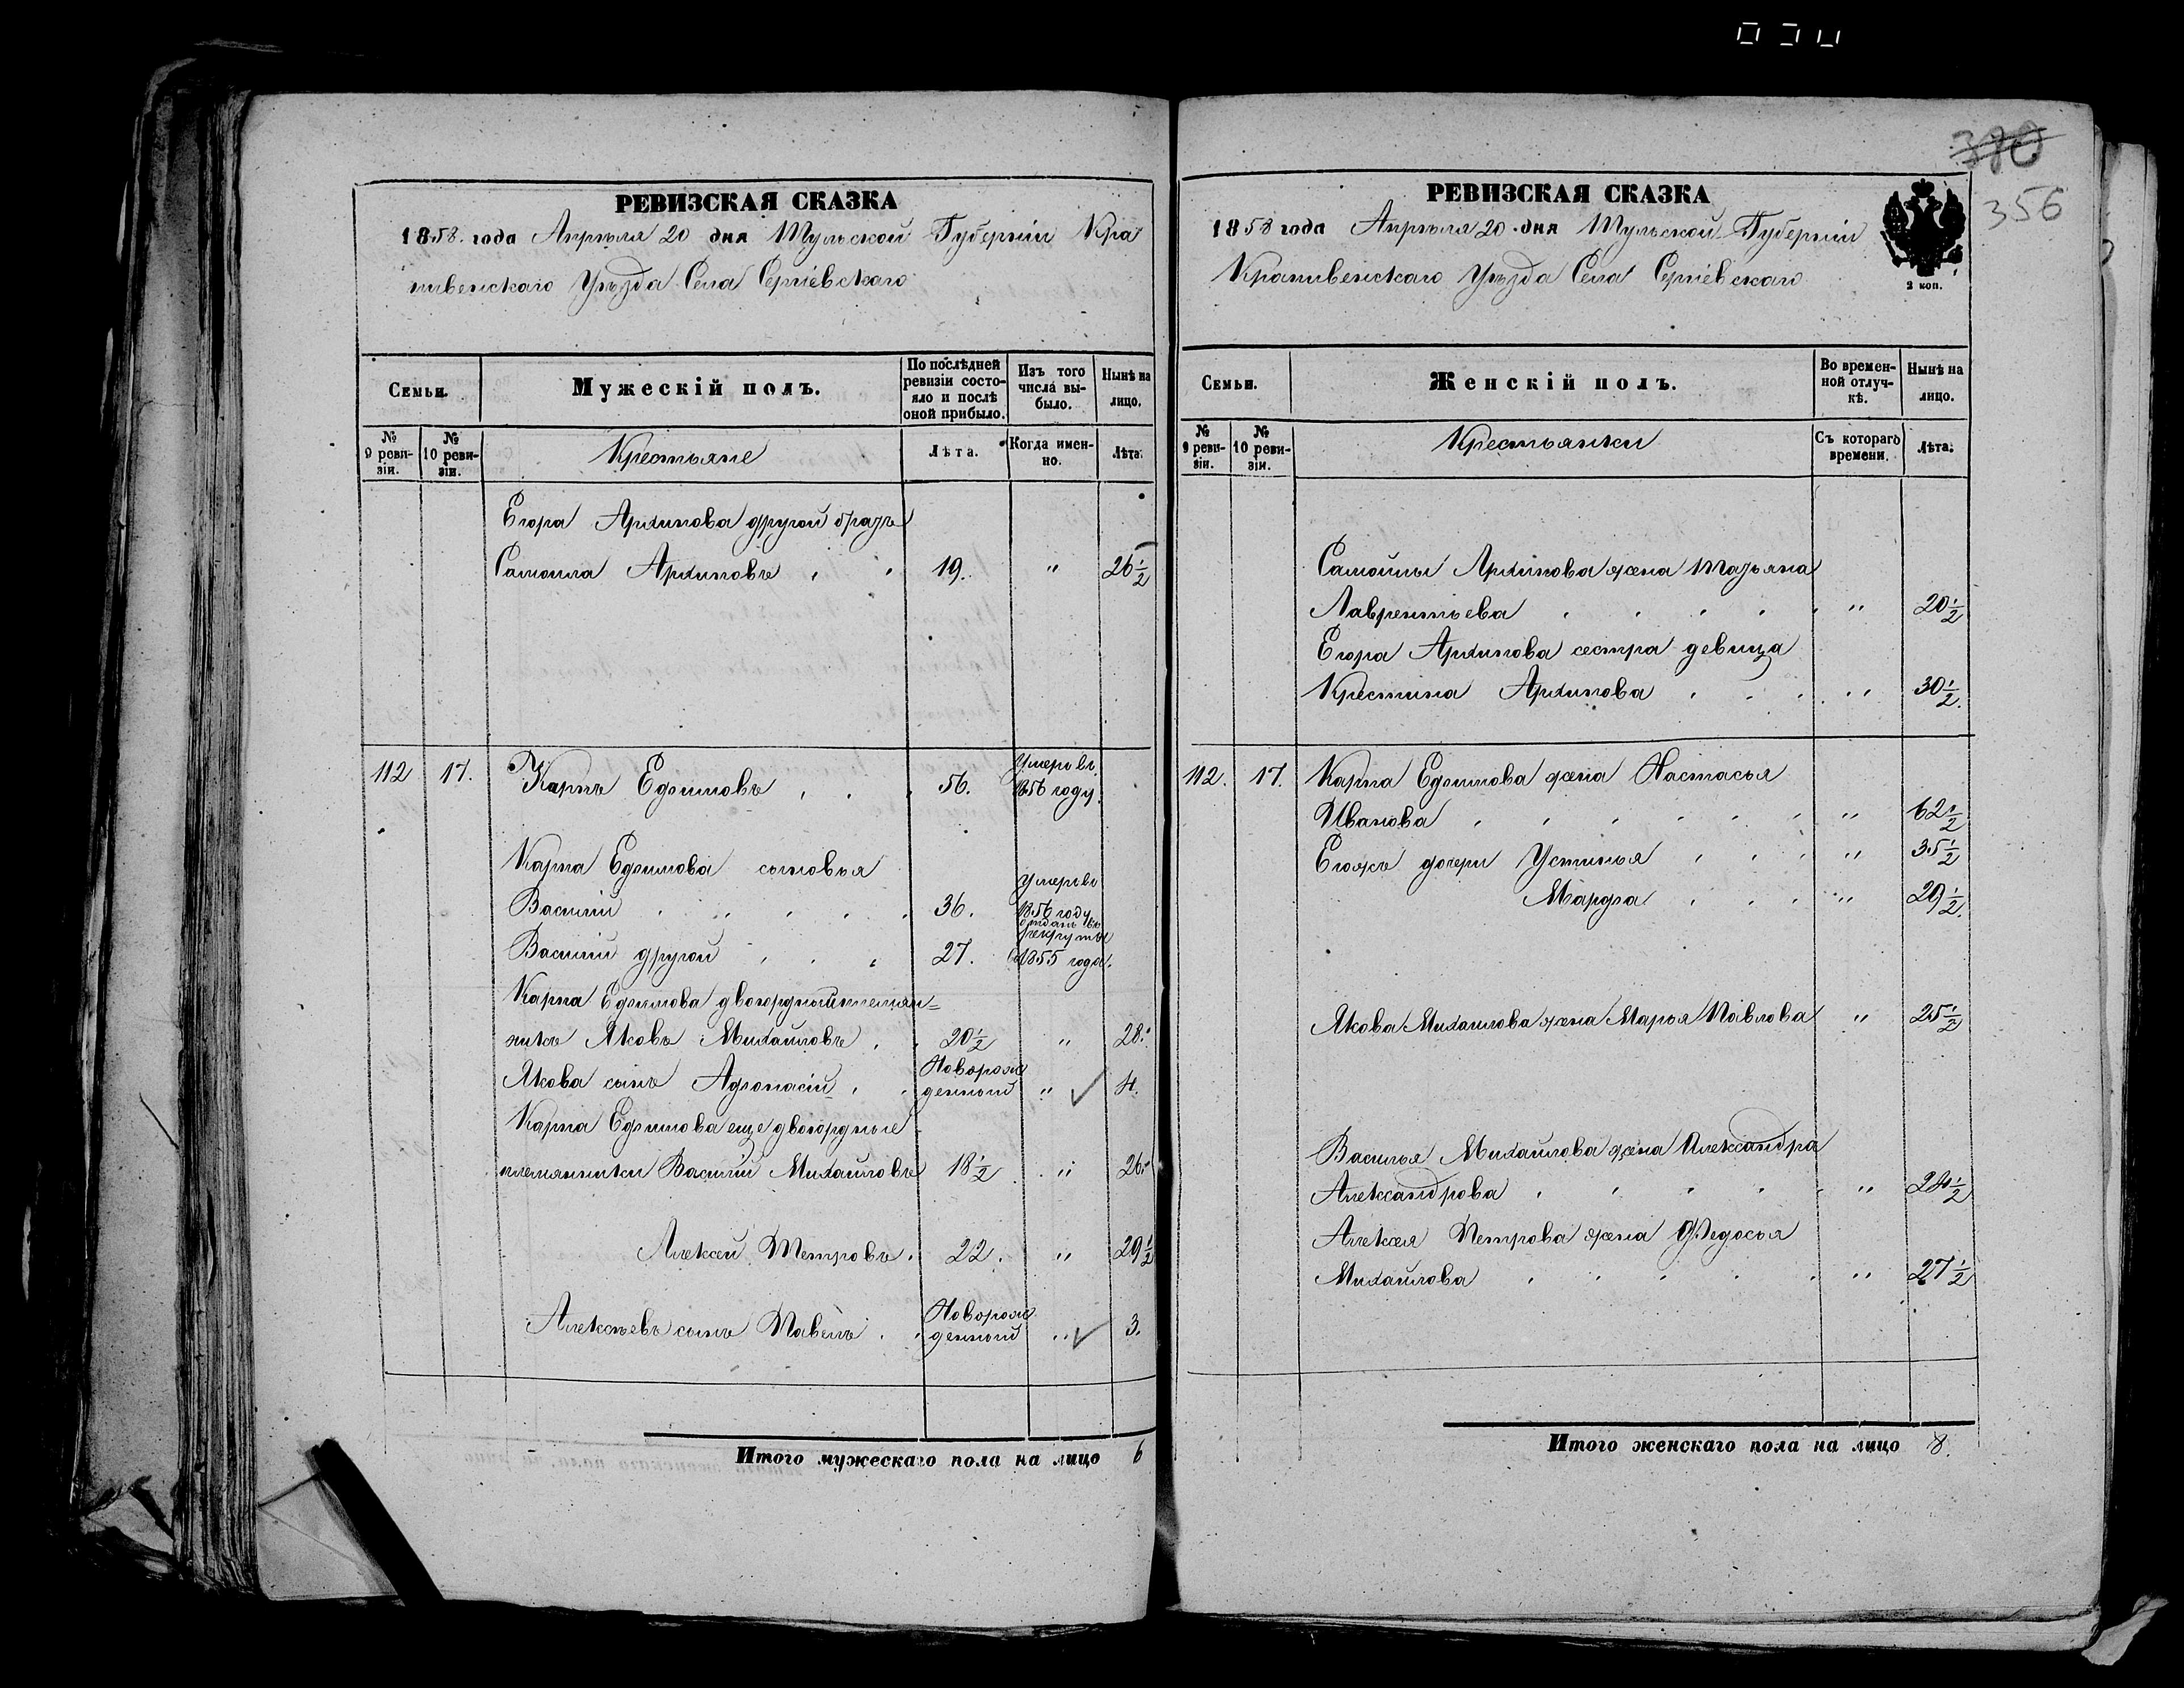 380
356
РЕВИЗСКАЯ СКАЗКА
1858. года Апрѣля 20 дня Тульской Губерніи Кра
пивенскаго Уѣзда Села Сергіевскаго
Семьи.
Мужескій полъ.
По послѣдней ревизіи состо-
яло и послѣ
оной прибыло.
Изъ того
числа вы-
было.
Нынѣ на
лицо.
№
9 реви-
зіи.
№
10 реви-
зіи.
Крестьяне
Лѣта.
Когда имен-
но.
Лѣта.
Егора Архипова другой братъ
Самоила Архиповъ 19. " 26 1/2
112 17. Карпъ Ефимовъ 56. Умеръ въ
1856 году.
Карпа Ефимова сыновья
Василій 36. Умеръ въ
1856 году
Василій другой 27. отданъ въ
рекруты
1855 года.
Карпа Ефимова двоюродный племян-
никъ Яковъ Михайловъ 20 1/2 " 28.
Якова сынъ Афонасій Новорож
денный " 4.
Карпа Ефимова еще двоюродные
племянники Василій Михайловъ 18 1/2 " 26.
Алексей Петровъ. 22. " 29 1/2
Алексѣевъ сынъ Павелъ Новорож
денный " 3.
Итого мужескаго пола на лицо 6
РЕВИЗСКАЯ СКАЗКА
1858 года Апрѣля 20 дня Тульской Губерніи
Крапивенскаго Уѣзда Села Сергіевскаго
2 коп.
Семьи.
Женскій полъ.
Во времен-
ной отлуч-
кѣ.
Нынѣ на
лицо.
№
9 реви-
зіи.
№
10 реви-
зіи.
Крестьянки
Съ котораго
времени.
Лѣта.
Самойлы Архипова жена Татьяна
Лаврентьева " 20 1/2
Егора Архипова сестра девица
Крестина Архипова " 30 1/2.
112. 17. Карпа Ефимова жена Настасья
Иванова " 62 1/2
Егожъ дочери Устинья " 35 1/2
Марфа " 29 1/2.
Якова Михайлова жена Марья Павлова " 25 1/2
Василья Михайлова жена Александра
Александрова " 24 1/2
Алексея Петрова жена Федосья
Михайлова " 27 1/2
Итого женскаго пола на лицо 8.